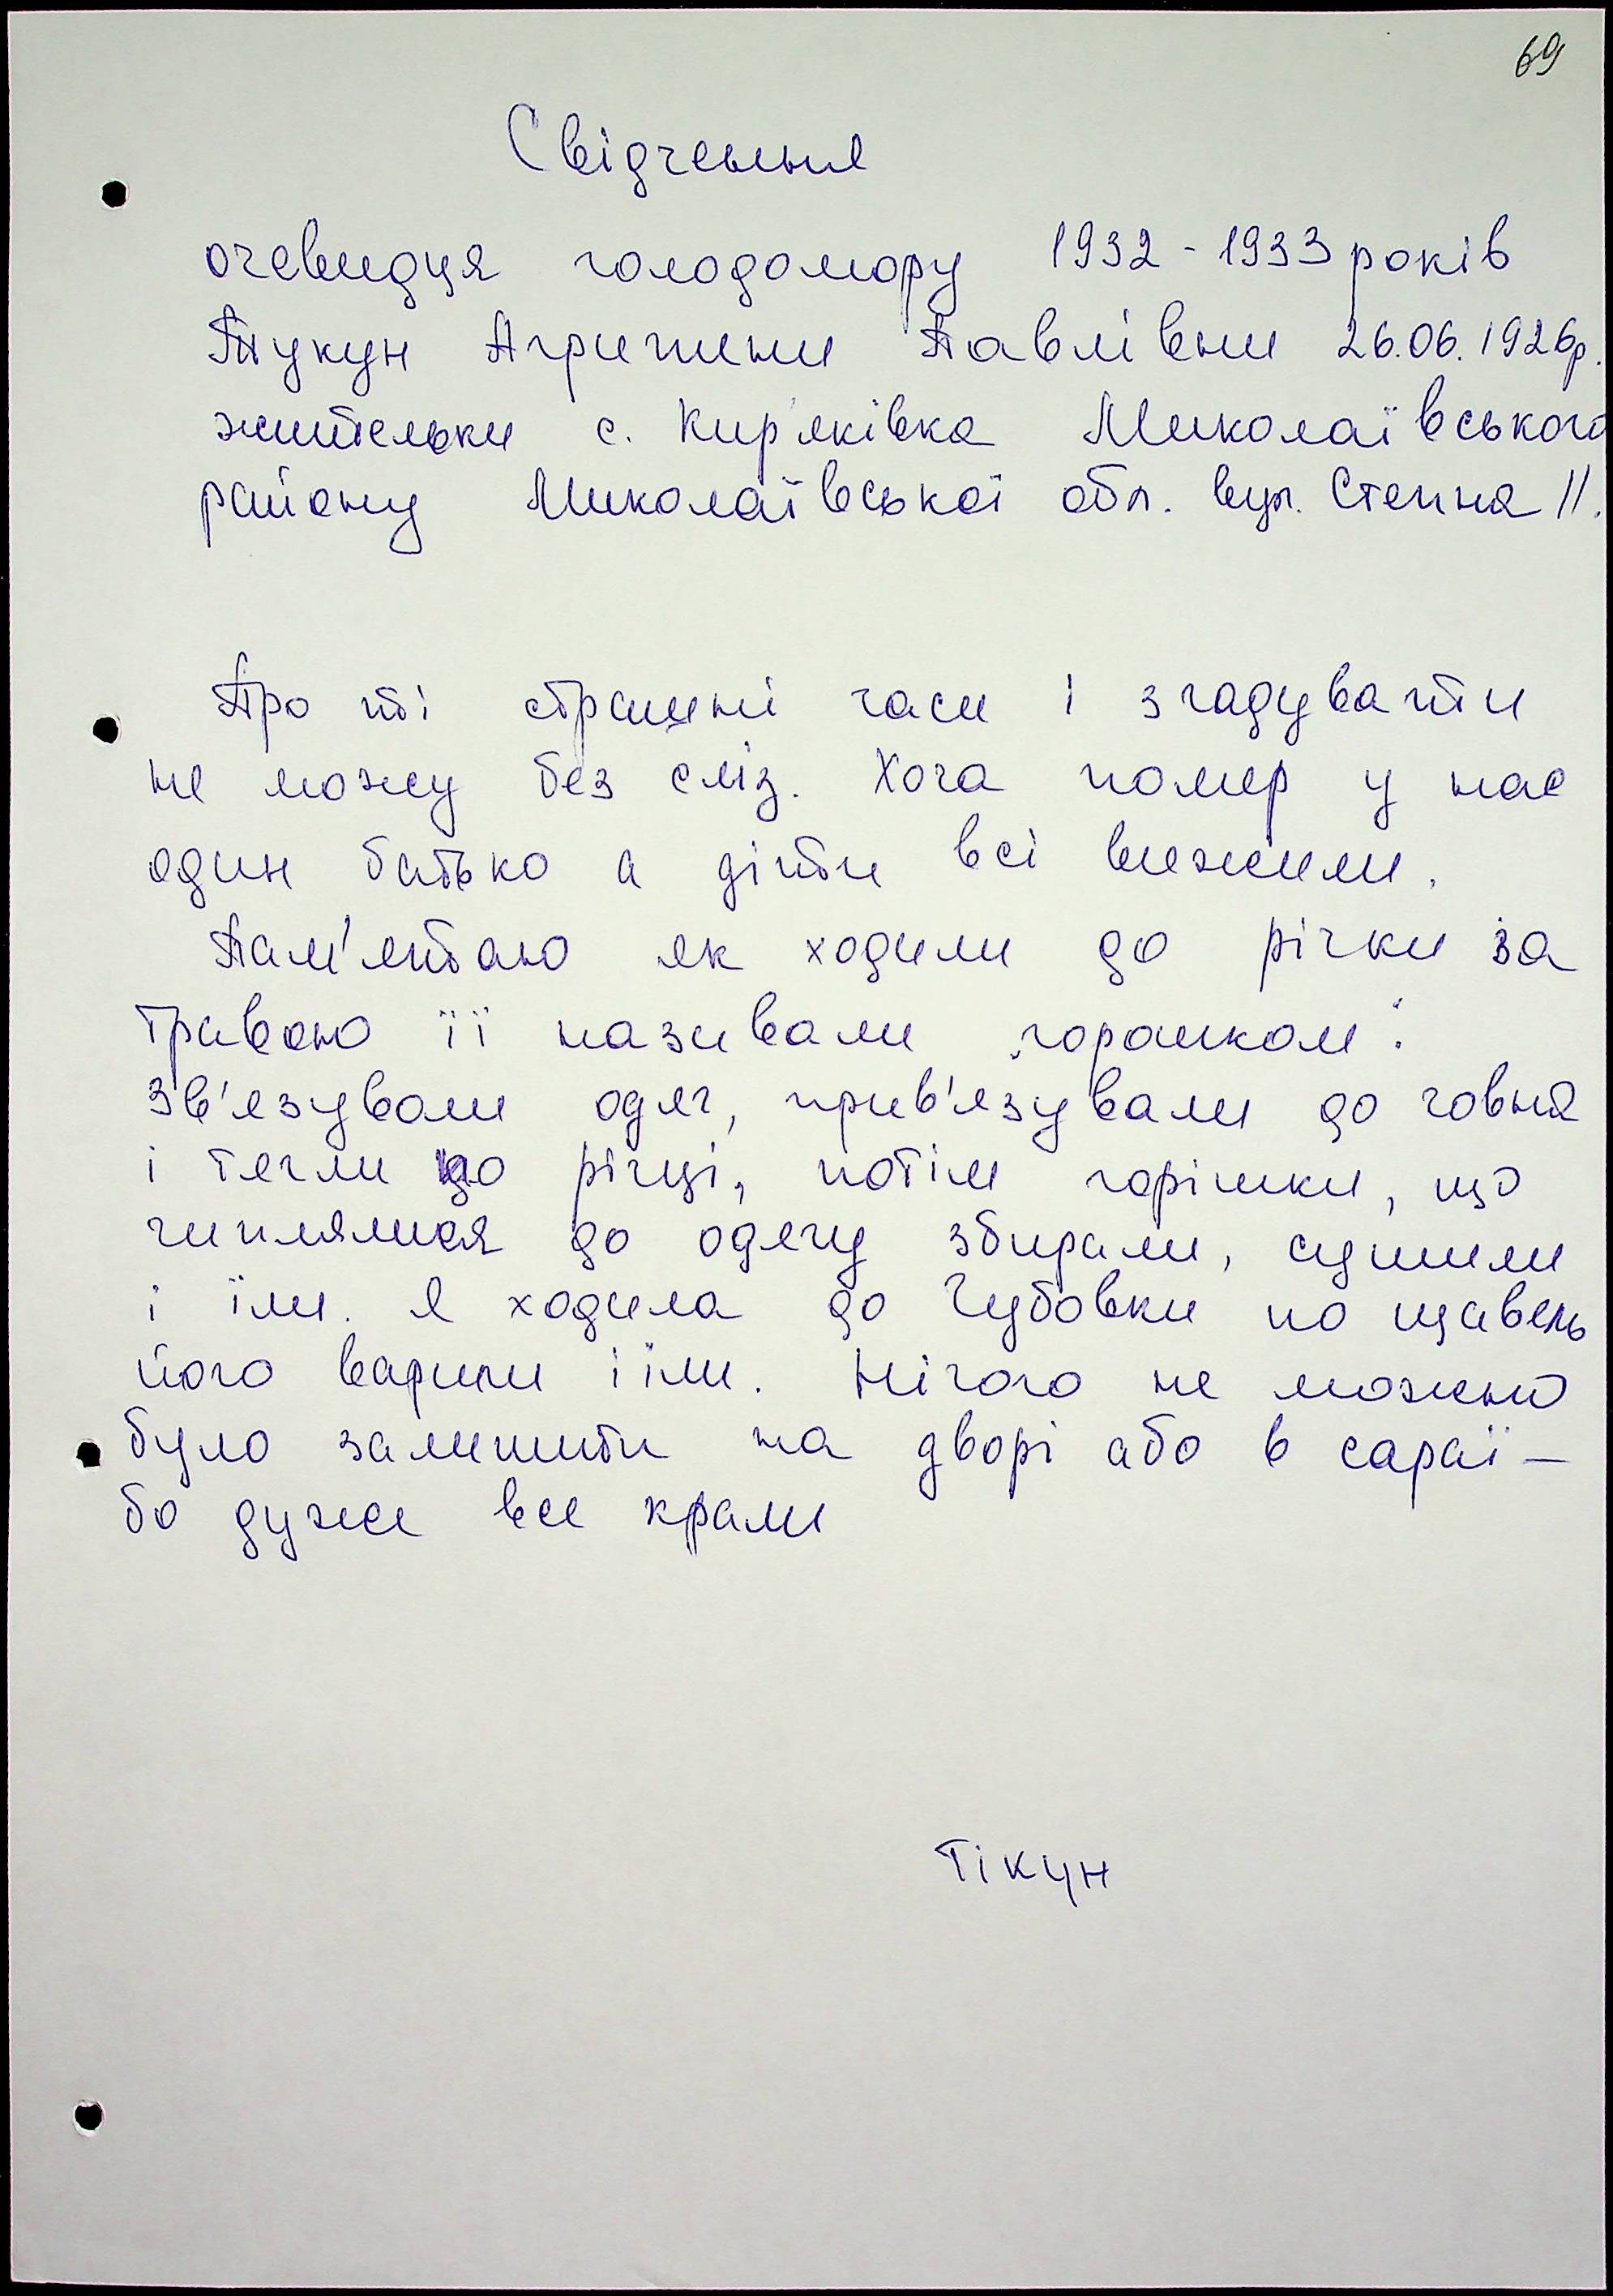 69
Свідчення
очевидця голодомору 1932 - 1933 років
Тукун Агрипини Павлівни 26.06.1926р.
жительки с. Кир'яківка Миколаївського
району Миколаївської обл. вул. Степна 11.
Про ті страшні часи і згадувати
не можу без сліз. Хоча помер у нас
один батько а діти всі вижили.
Пам'ятаю як ходили до річки за
травою її називали "горошком".
Зв'язували одяг, прив'язували до човна
і тягли по річці, потім горішки, що
чиплялися до одягу збирали, сушили
і їли. Я ходила до Чубовки по щавель
його варили і їли. Нічого не можно
було залишити на дворі або в сараї –
бо дуже все крали
Тікун